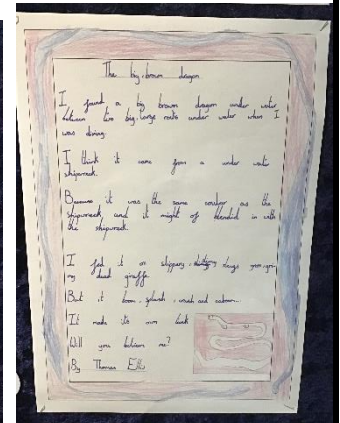 The big brown dragon
I found a big brown dragon under water
between two big large rocks under water when I
was diving.
I think it came from a under water
shipwreck.
Because it was the same coulor as the
shipwreck and it might of blendid in with
the shipwreck.
I fed it on slippery slugs
my dead giraffe.
But it boom, splash, crash and
It made it's own
Will you believe me?
By Thomas Ellis